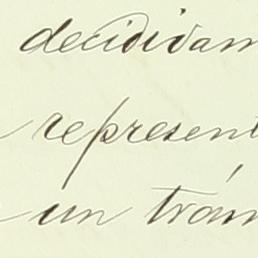 decidivam
represent
un trám